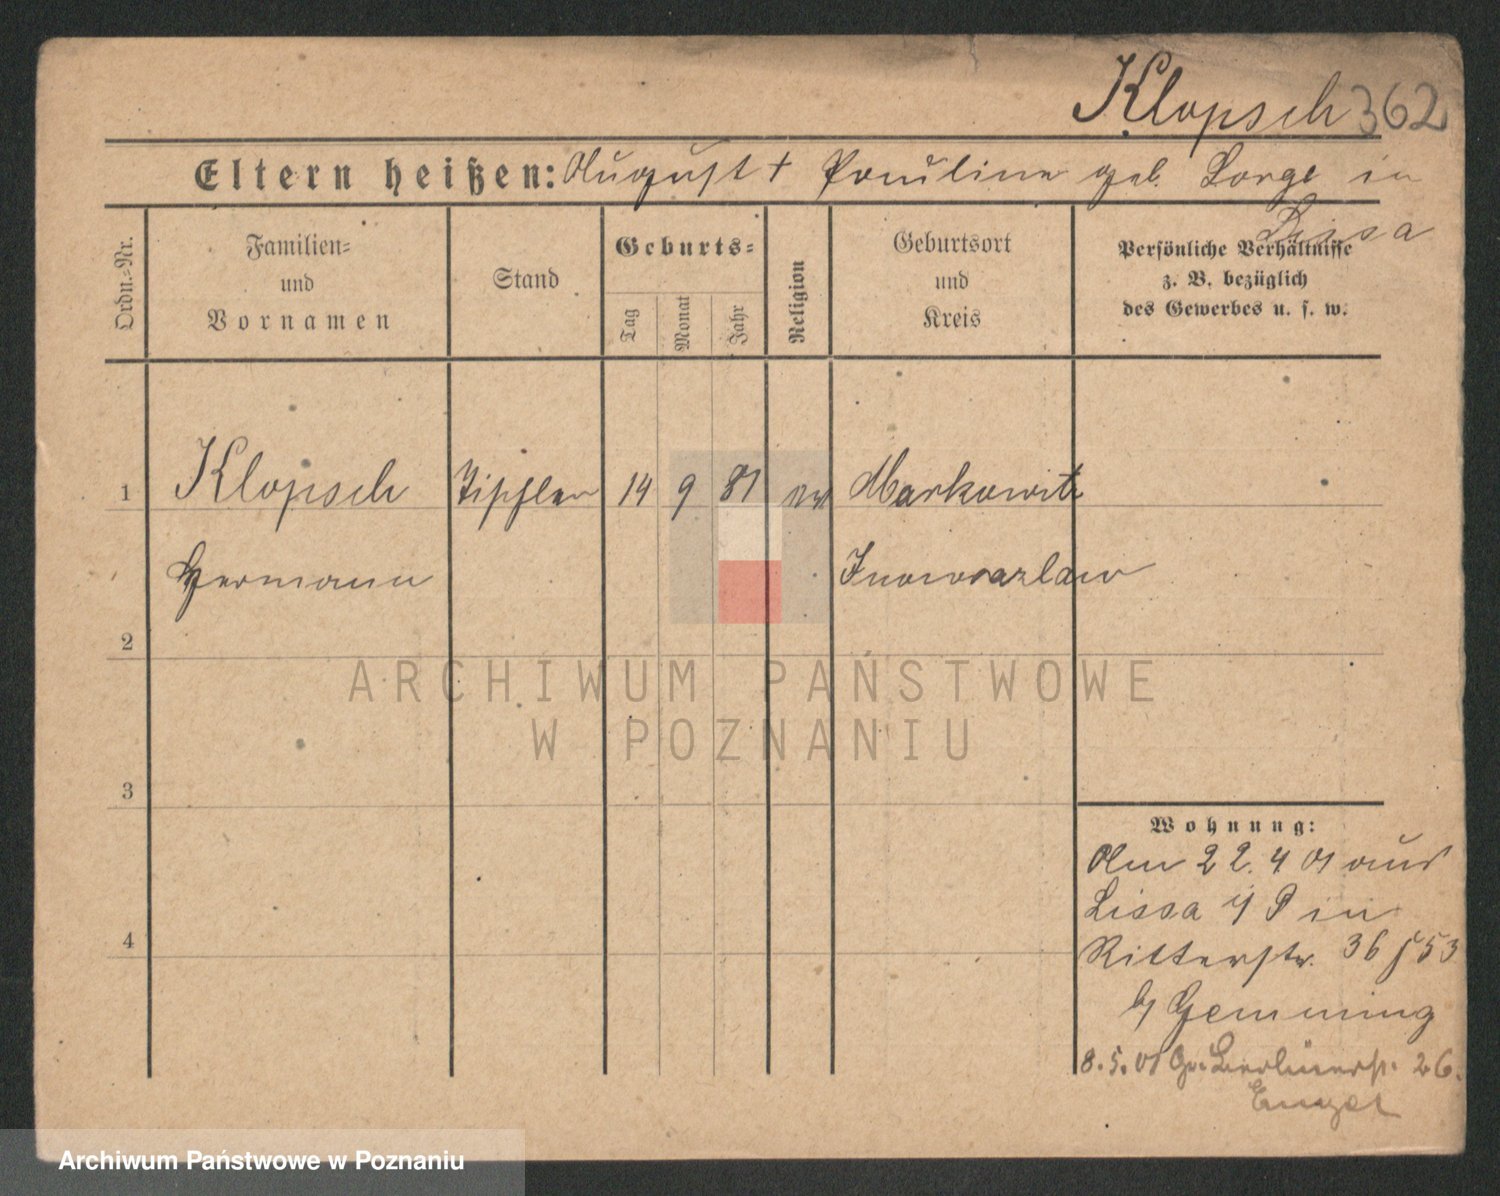 Klopsch 362
Eltern heißen: August † Pauline geb. Lorge in
Lissa
Ordn.-Nr.
Familien-
und
Vornamen
Stand
Geburts-
Tag
Monat
Jahr
Religion
Geburtsort
und
Kreis
Persönliche Verhältnisse
z. B. bezüglich
des Gewerbes u. s. w.
1 Klopsch Tischler 14 9 81 ev Markowitz
Hermann Inowrazlaw
2
ARCHIWUM PAŃSTWOWE
W POZNANIU
3
Wohnung:
Am 22. 4 01 aus
Lissa i/P in
Ritterstr. 36 53
b/ Gemming
4
8. 5. 01 Gr. Berlinerstr. 26.
Archiwum Państwowe w Poznaniu